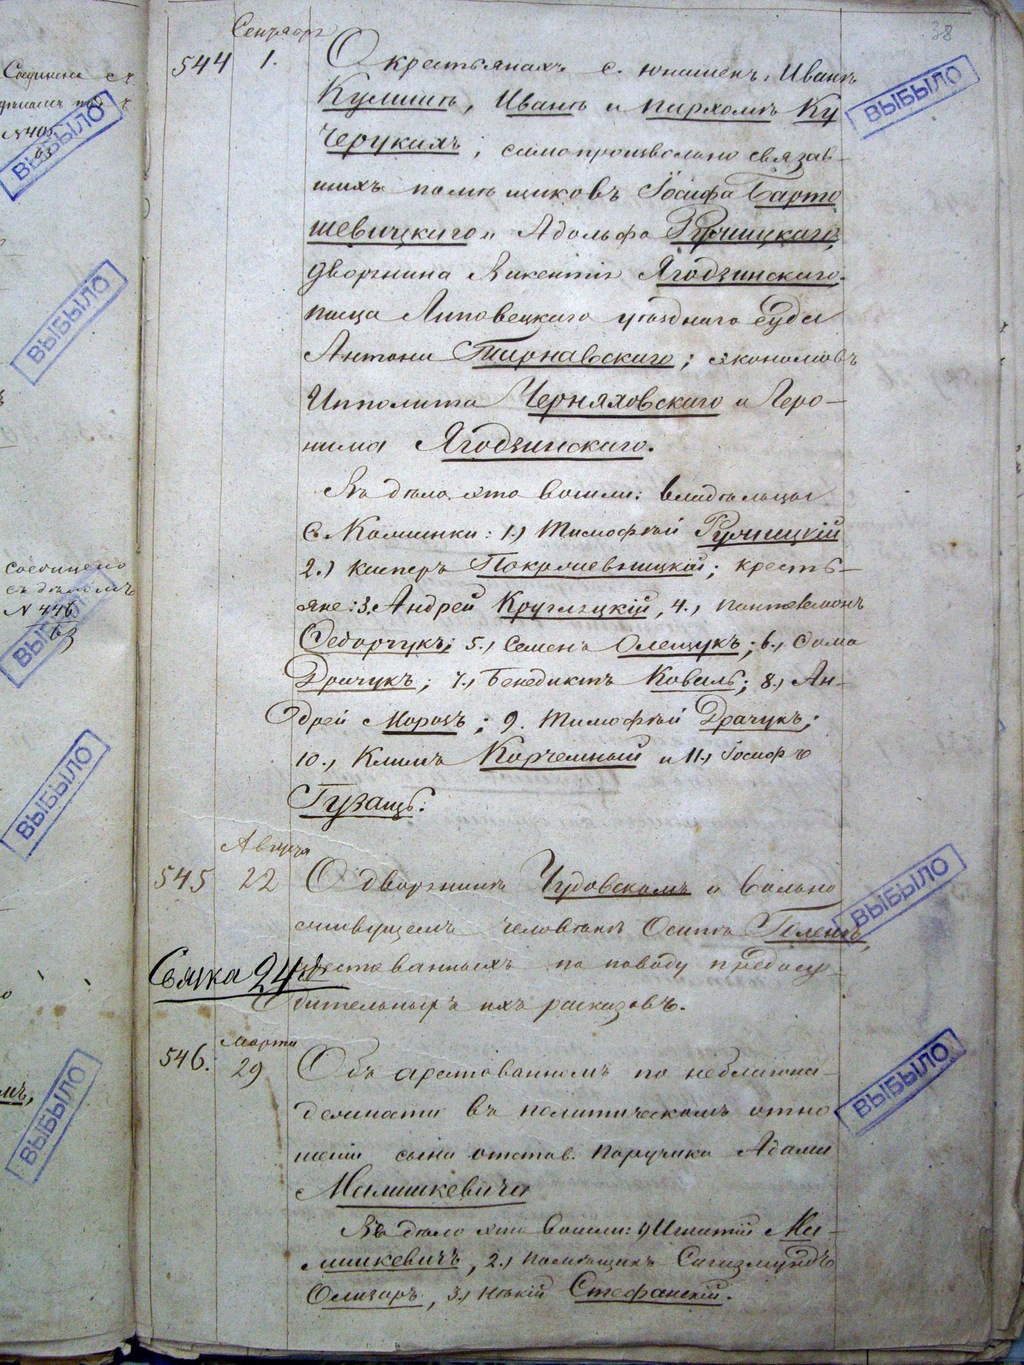 38
Соединено съ
№ 405
ВЫБЫЛО
ВЫБЫЛО
Соединено
съ дѣломъ
№ 446
63
ВЫБЫЛО
ВЫБЫЛО
ВЫБЫЛО
Сентября
544 1. О крестьянахъ с. Иванѣ
Кулишѣ, Иванѣ и Пархомѣ Ку
черукахъ, самопроизвольно связав-
шихъ помѣщиковъ Іосифа Барто
шевицкаго и Адольфа Ручицкаго,
дворянина Викентія Ягодзинскаго.
писца Липовецкаго уѣзднаго суда
Антона Тирнавскаго; экономовъ
Ипполита Черняховскаго и Геро-
нима Ягодзинскаго.
Въ дѣло это вошли: владѣльцы
с. Каминки: 1.) Тимофѣй Ручицкій
2.) Касперъ; кресть-
яне: 3. Андрей Круглецкій, 4.) Пантелемонъ
Федорчукъ; 5.) Семенъ Олещукъ; 6.) Фома
Драчукъ; 7.) Бенедиктъ Коваль; 8.) Ан-
дрей Морозъ; 9. Тимофѣй Драчукъ;
10.) Климъ Корчемный и 11.) Іосифъ
Гузащъ.
ВЫБЫЛО
Августа
545 22 О дворянинѣ Чудовскомъ и вольно
живущемъ человѣкѣ Осипѣ
Связка 24я арестованныхъ по поводу предосу-
дительныхъ ихъ расказовъ.
ВЫБЫЛО
Марта
546. 29 Объ арестованномъ по неблагона-
дежности въ политическомъ отно
шеніи сына отстав. поручика Адама
Малишкевича
Въ дѣло это вошли: 1) Игнатій Ма-
лишкевичъ, 2.) помѣщикъ Сигизмундъ
Олизаръ, 3.) нѣкій Стефанскій.
ВЫБЫЛО